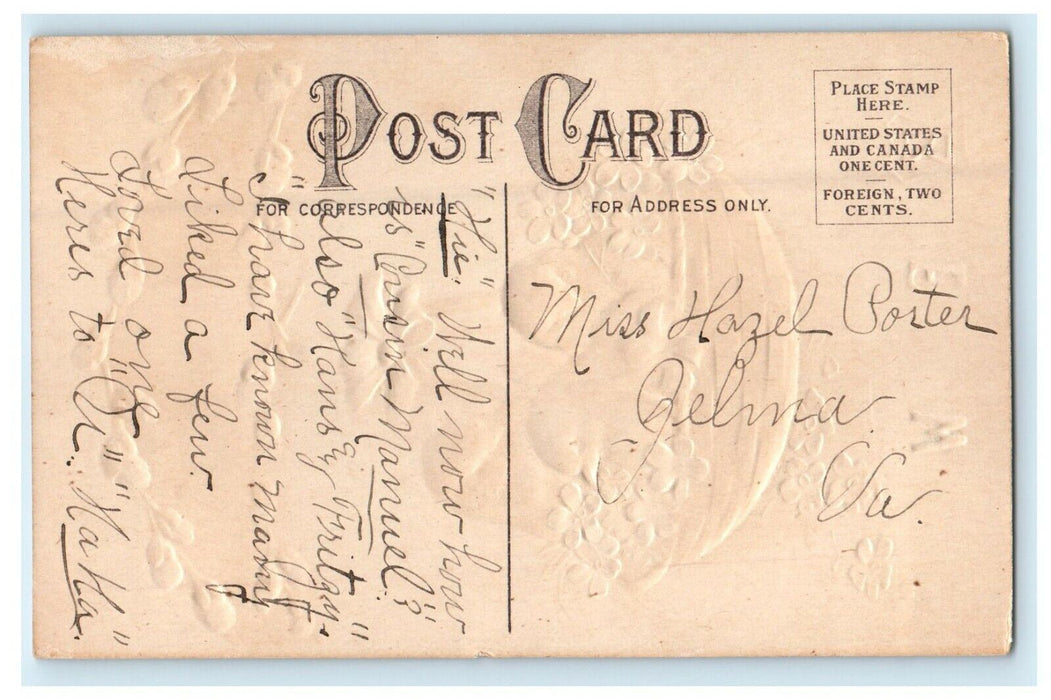 POST CARD
PLACE STAMP
HERE.
UNITED STATES
AND CANADA
ONE CENT.
FOREIGN, TWO
CENTS.
FOR CORRESPONDENCE
FOR ADDRESS ONLY.
"Hie". Well now how
is "Cusin Manuel"?
also "Hans & Fritzy."
"I have known many
Liked a few.
Loved one
Heres to "U". "HaHa."
Miss Hazel Porter
Jelma
Va.